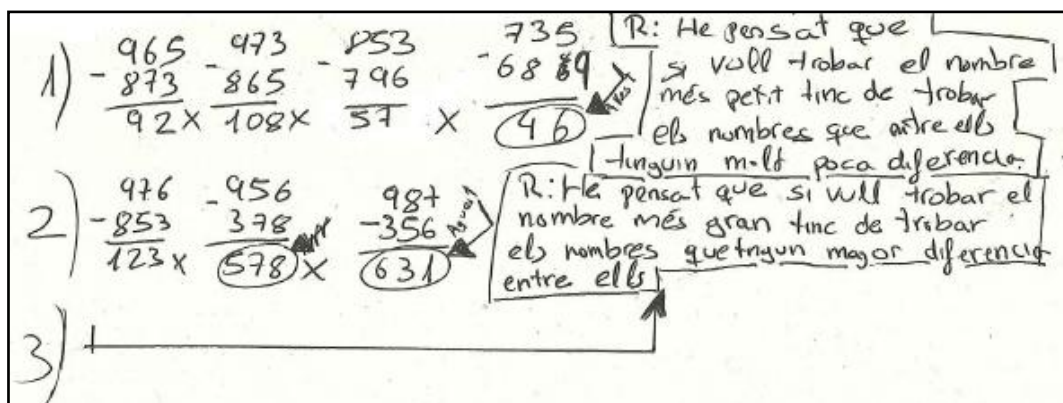 1)
965
- 873
92 x
- 973
865
108 x
- 853
796
57 x
735
- 689
46
R: He pensat que
si vull trobar el nombre
més petit tinc de trobar
els nombres que antre ells
tinguin molt poca diferencia.
2)
976
- 853
123 x
- 956
378
578 x
987
- 356
631
R: He pensat que si vull trobar el
nombre més gran tinc de trobar
els nombres que tingun major diferencia
entre ells
3)